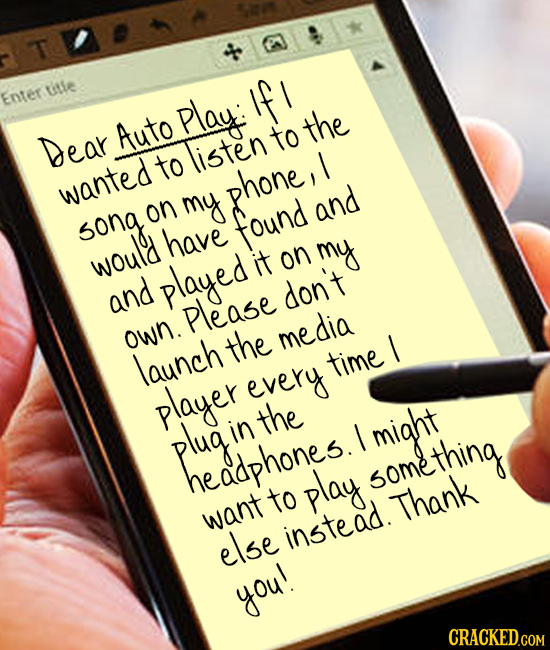 Save
T
Enter title
Dear Auto Play: If I
wanted to listen to the
song on my phone, I
would have found and
and played it on my
own. Please don't
launch the media
player every time I
plug in the
headphones. I might
want to play something
else instead. Thank
you!
CRACKED.COM